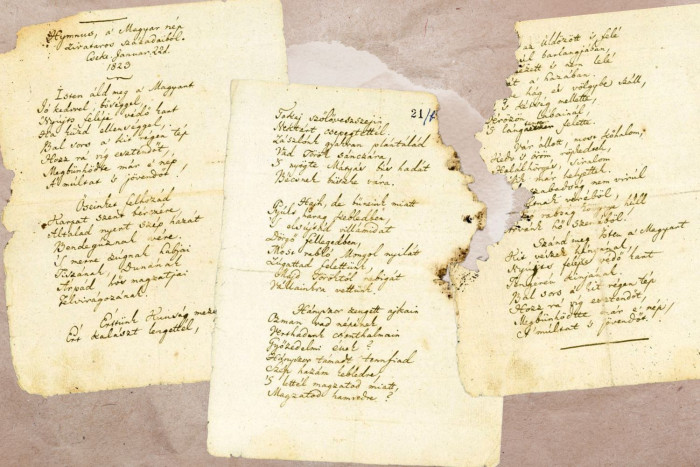 Hymnus, a' Magyar nép
zivataros századaiból.
Cseke. Januar. 22d.
1823
Isten áldd meg a' Magyart
Jó kedvvel, bőséggel,
Nyújts feléje védő kart
Ha küzd ellenséggel;
Bal sors a' kit régen tép
Hozz rá víg esztendőt,
Megbünhödte már e' nép
A' multat 's jövendőt!
Őseinket felhozád
Kárpát szent bérczére,
Általad nyert szép hazát
Bendegúznak vére.
'S merre zúgnak habjai
Tiszának, Dunának,
Árpád hős magzatjai
Felvirágozának.
Értünk Kunság mezein
Ért kalászt lengettél,
21/
Tokaj szőlővesszein
Nektárt csepegtettél.
Zászlónk gyakran plántálád
Vad Török sánczára,
'S nyögte Mátyás bús hadát
Bécsnek büszke vára.
Hajh, de bűneink miatt
Gyúlt harag kebledben,
'S elsújtád villámidat
Dörgő fellegedben,
Most rabló Mongol nyilát
Zúgattad felettünk,
Majd Töröktől rabigát
Vállainkra vettünk.
Hányszor zengett ajkain
Ozman vad népének
Vert hadunk csonthalmain
Győzedelmi ének!
Hányszor támadt tennfiad
Szép hazám kebledre,
'S lettél magzatod miatt,
Magzatod hamvedre?
üldözött 's felé
barlangjában,
nézett 's nem lelé
't a' hazában.
hág és völgybe száll,
'S kétség mellette,
Vérözön lábainál,
'S lángtenger felette.
Vár állott, most kőhalom,
Kedv 's öröm röpkedtek,
Halálhörgés, siralom
Zajlik már helyettek.
szabadság nem virúl
véréből,
rabság könnye hull
hő szeméből!
Szánd meg Isten a' Magyart
Kit vészek hányának,
Nyújts feléje védő kart
Tengerén kínjának.
Bal sors a' kit régen tép
Hozz rá víg esztendőt,
Megbünhödte már e' nép
A' multat 's jövendőt!